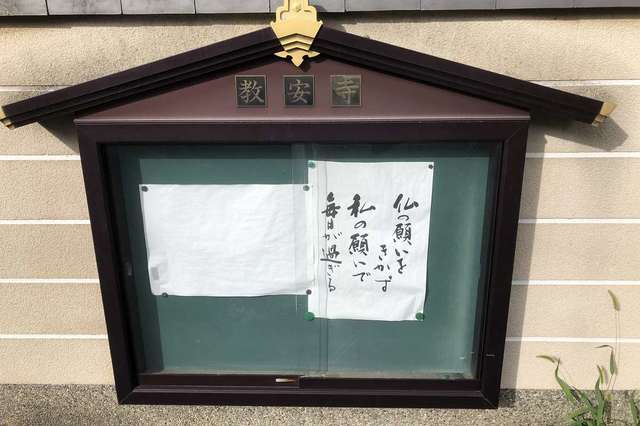 教安寺
仏の願いを
きかず
私の願いで
毎日が過ぎる